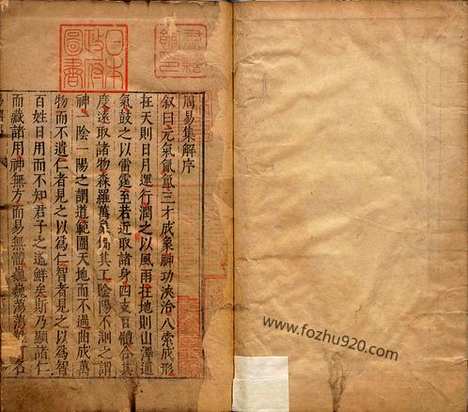 周易集解序
叙曰元氣氤氳三才成象神功浹洽八索成形
在天則日月運行潤之以風雨在地則山澤通
氣鼓之以雷霆至若近取諸身四支百體合其
度遠取諸物森羅萬象備其工陰陽不測之謂
神一陰一陽之謂道範圍天地而不過曲成萬
物而不遺仁者見之以為仁智者見之以為智
百姓日用而不知君子之道鮮矣斯乃顯諸仁
而藏諸用神無方而易無體巍巍蕩蕩
日本政府圖書
www.fozhu920.com